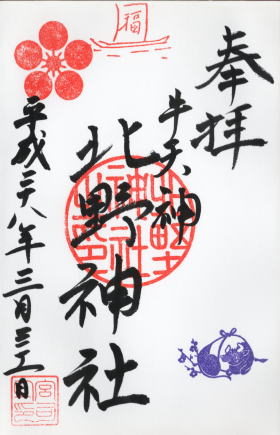 奉拝
牛天神
北野神社
平成二八年三月三一日
福